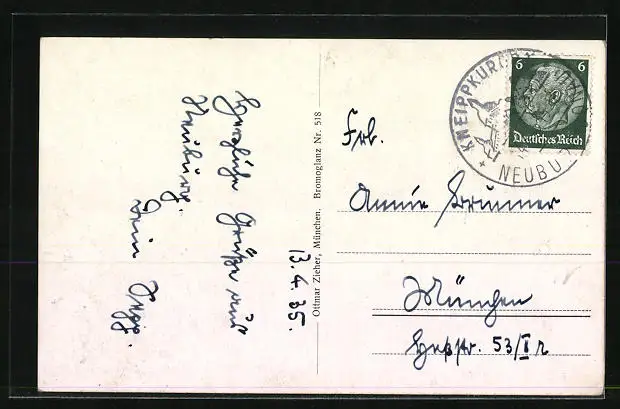 Herzliche Grüße aus
Neuburg.
Dein Sepp.
13.4.35.
Ottmar Zieher, München. Bromoglanz Nr. 518
+ KNEIPPKUROR
NEUBU
6 6
Deutsches Reich
Frl.
Annie Brunner
München
Heßstr. 53/I r